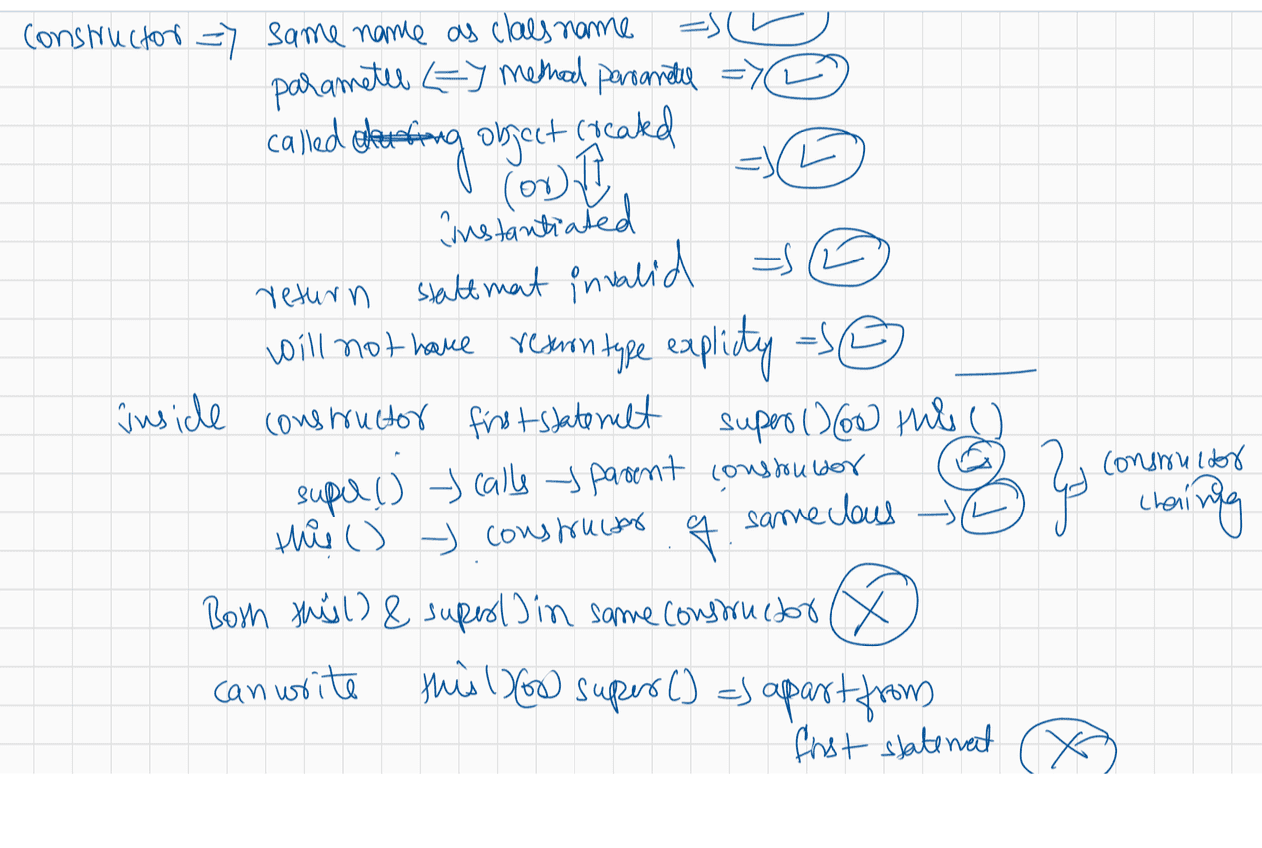 constructor => same name as class name =>
parameter <=> method parameter =>
called object created =>
(or)
instantiated
return statmat invalid =>
will not have return type explicity =>
inside constructor first statemet super() (or) this()
super() -> calls -> parent construcor
this() -> constructor of same class ->
} => constructor chaining
Both this() & super() in same constructor X
can write this() (or) super() => apart from
first statemet X